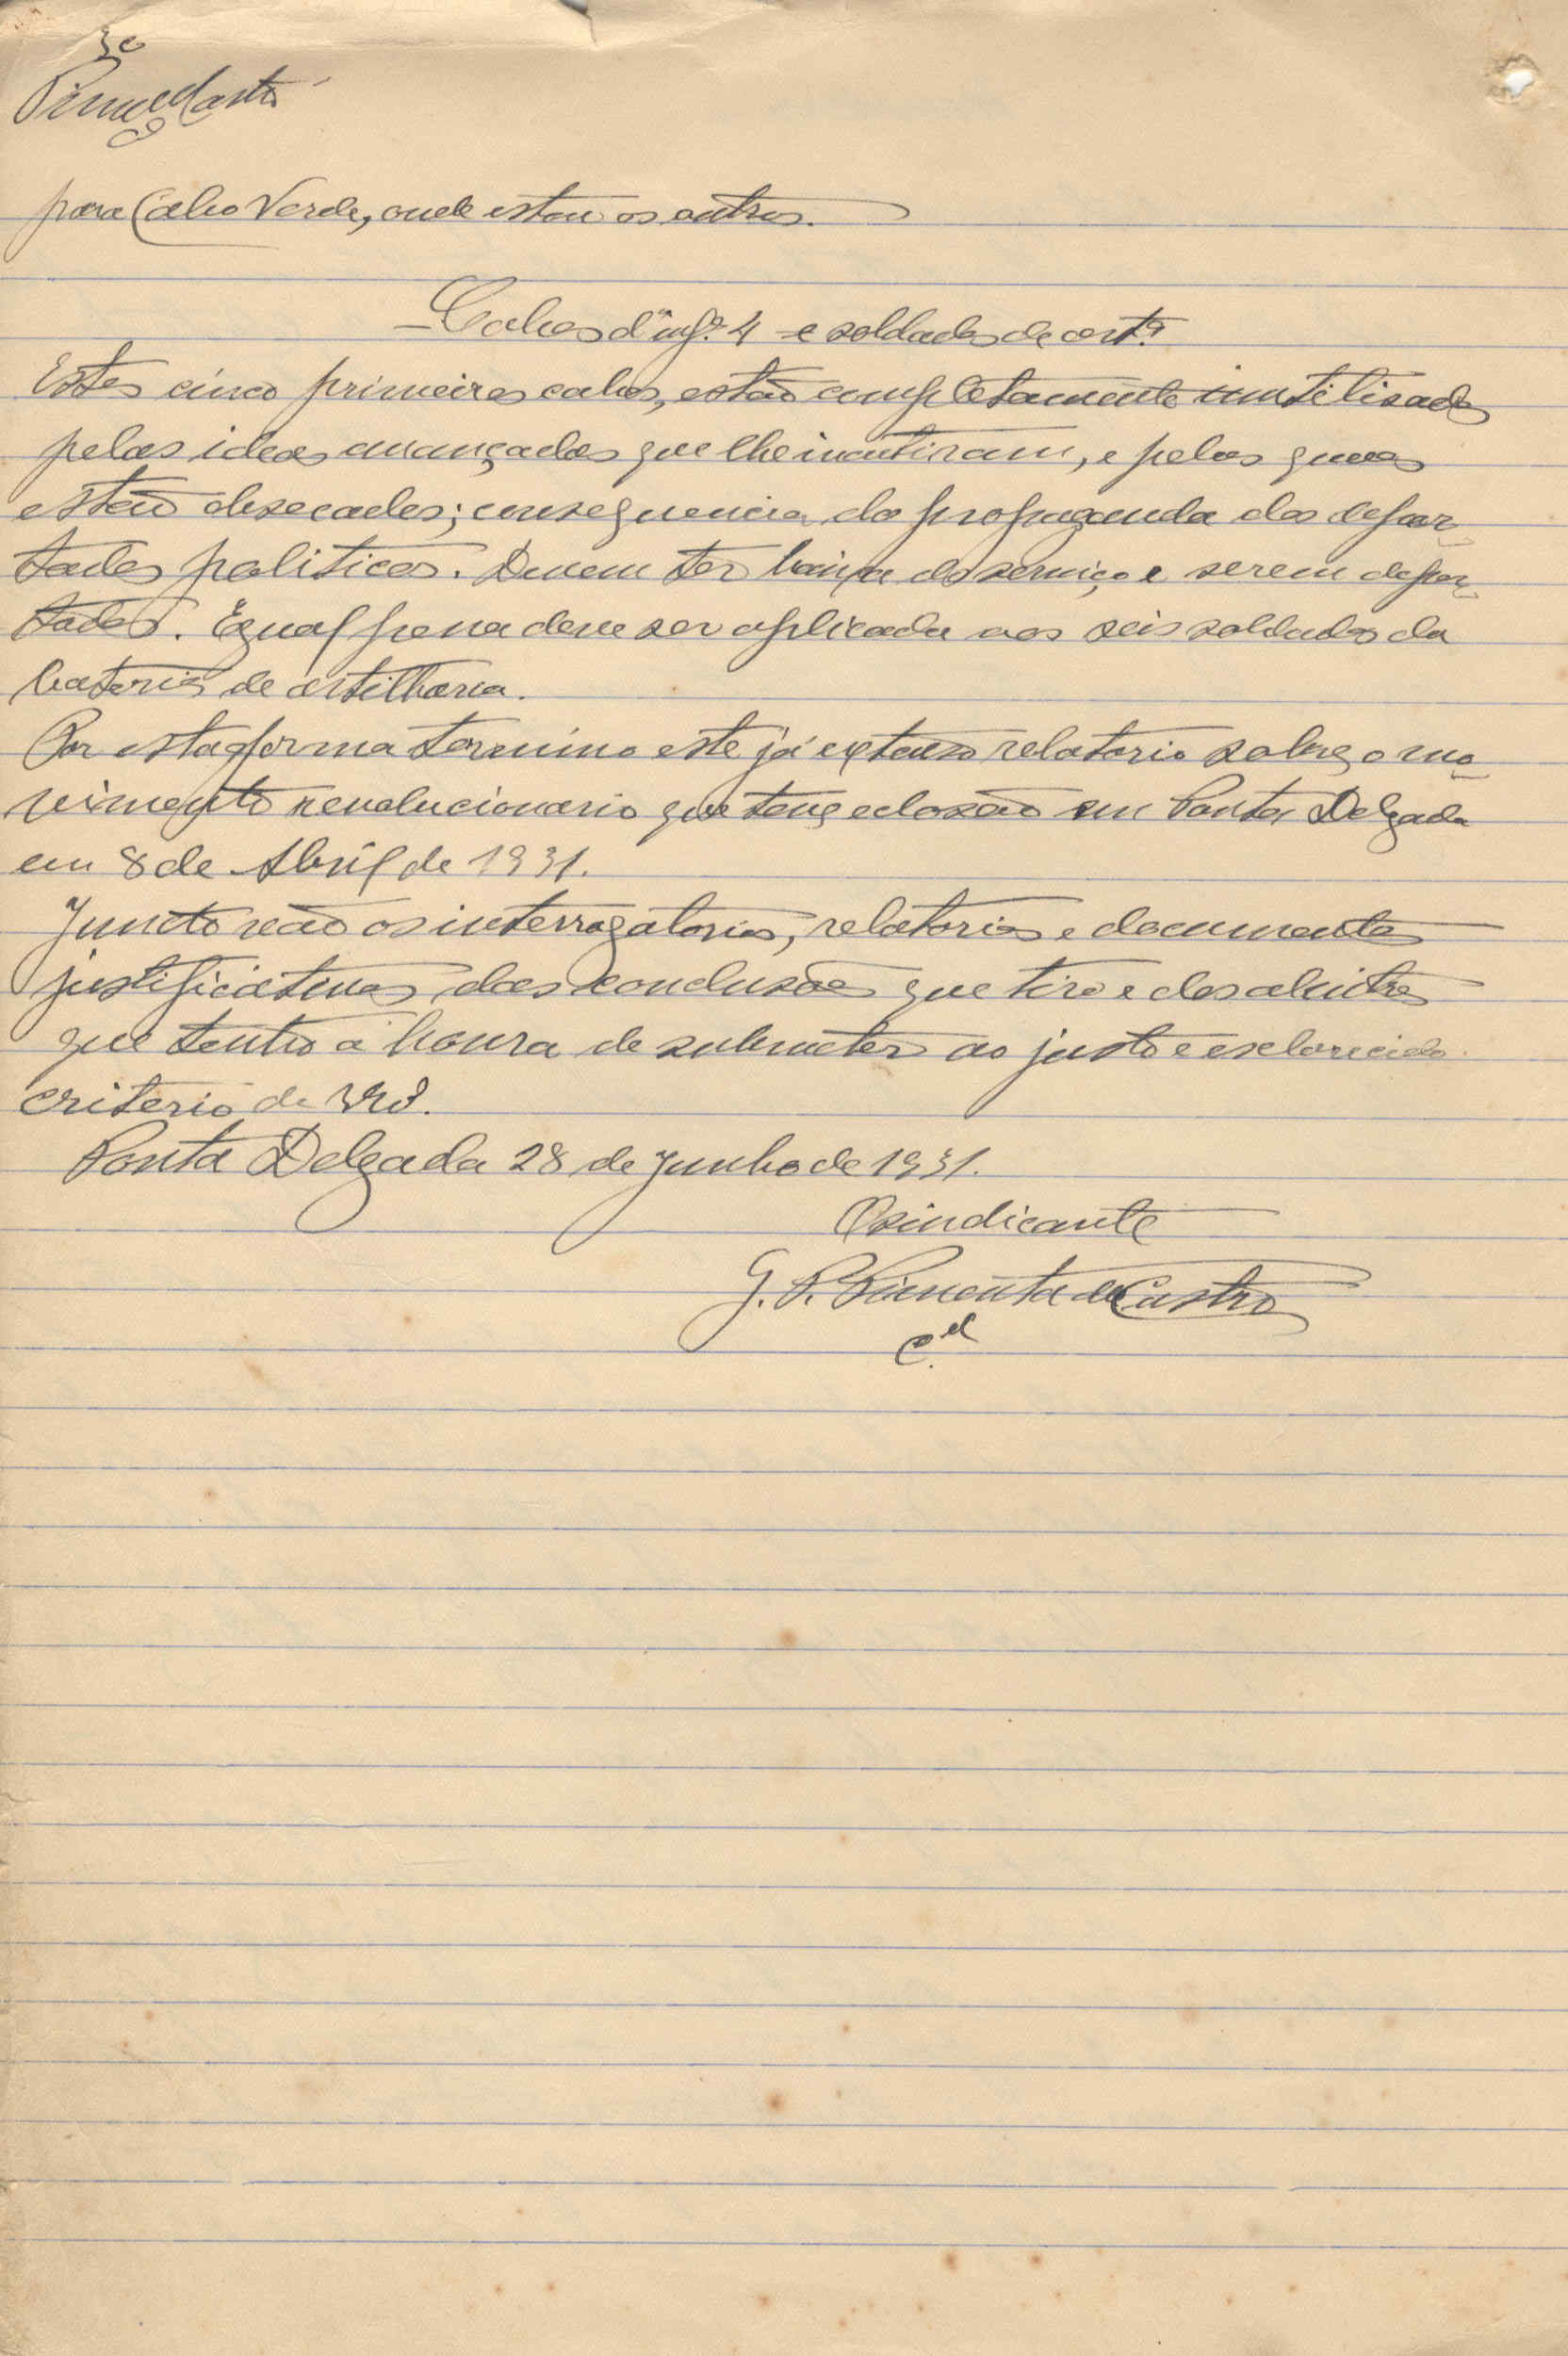 30
Pim Castro
para Cabo Verde, onde estão os outros.
— Cabos d'infª. 4 e soldados de artª
Estes cinco primeiros cabos, estão completamente inutilisados
pelas ideas avançadas que lhe incutiram, e pelas quaes
estão obsecados; consequencia da propaganda dos depor-
tados politicos. Devem ter baixa do serviço e serem depor-
tados. Egual pena deve ser aplicada aos seis soldados da
bateria de artilharia.
Por esta forma termino este já extenso relatorio sobre o mo-
vimento revolucionario que teve eclosão em Ponta Delgada
em 8 de Abril de 1931.
Juncto vão os interrogatorios, relatorios e documentos
justificativos das conclusões que tiro e dos alvitres
que tenho a honra de submeter ao justo e esclarecido
criterio de
Ponta Delgada 28 de Junho de 1931.
O sindicante
G. P. Pimenta de Castro
C.el